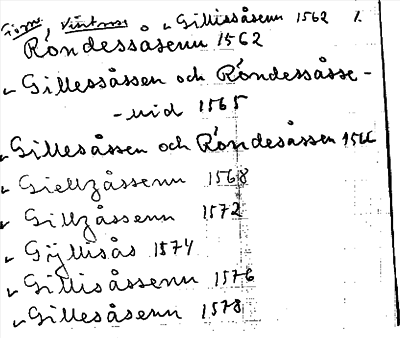 Gillissåsenn 1562 1.
Röndessåsenn 1562
Gillessåssen och Röndessåsse-
-nid 1565
Gillesåssen och Röndesåssen 1566
Giellzåssenn 1568
Gillzåssenn 1572
Göjllisås 1574
Gillisåssenn 1576
Gillesåsenn 1578